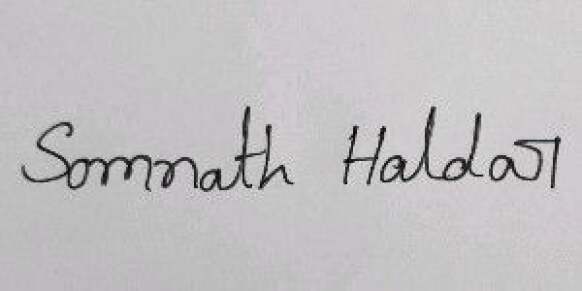 Somnath Haldar